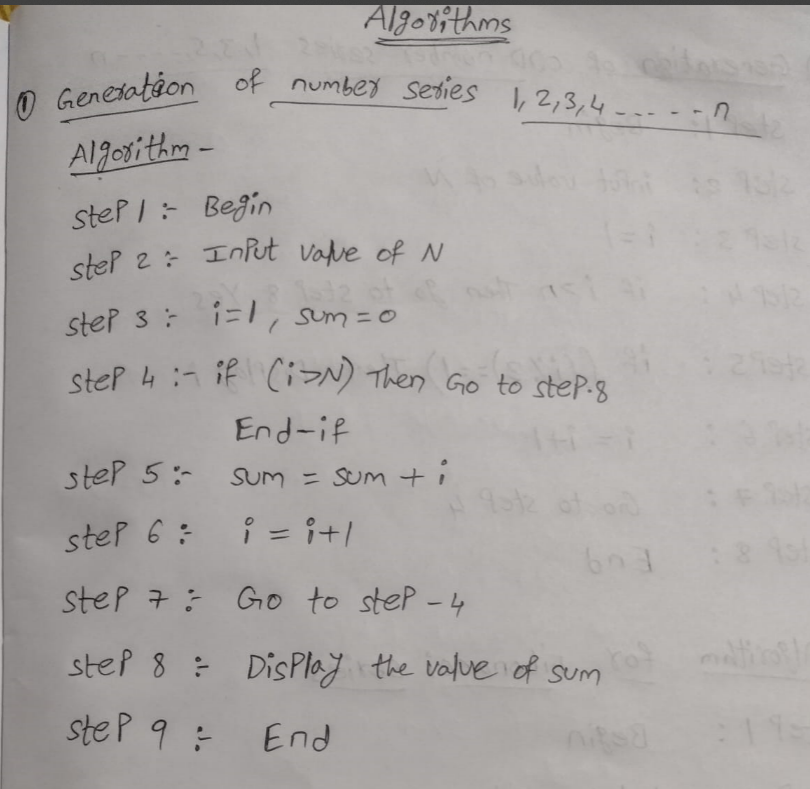 Algorithms
① Generation of number series 1, 2, 3, 4 ------ n
Algorithm -
steP 1 :- Begin
steP 2 :- InPut value of N
steP 3 :- i=1, sum=0
steP 4 :- if (i>N) Then Go to steP-8
End-if
steP 5 :- sum = sum + i
steP 6 :- i = i+1
steP 7 :- Go to steP - 4
steP 8 :- DisPlay the value of sum
steP 9 :- End